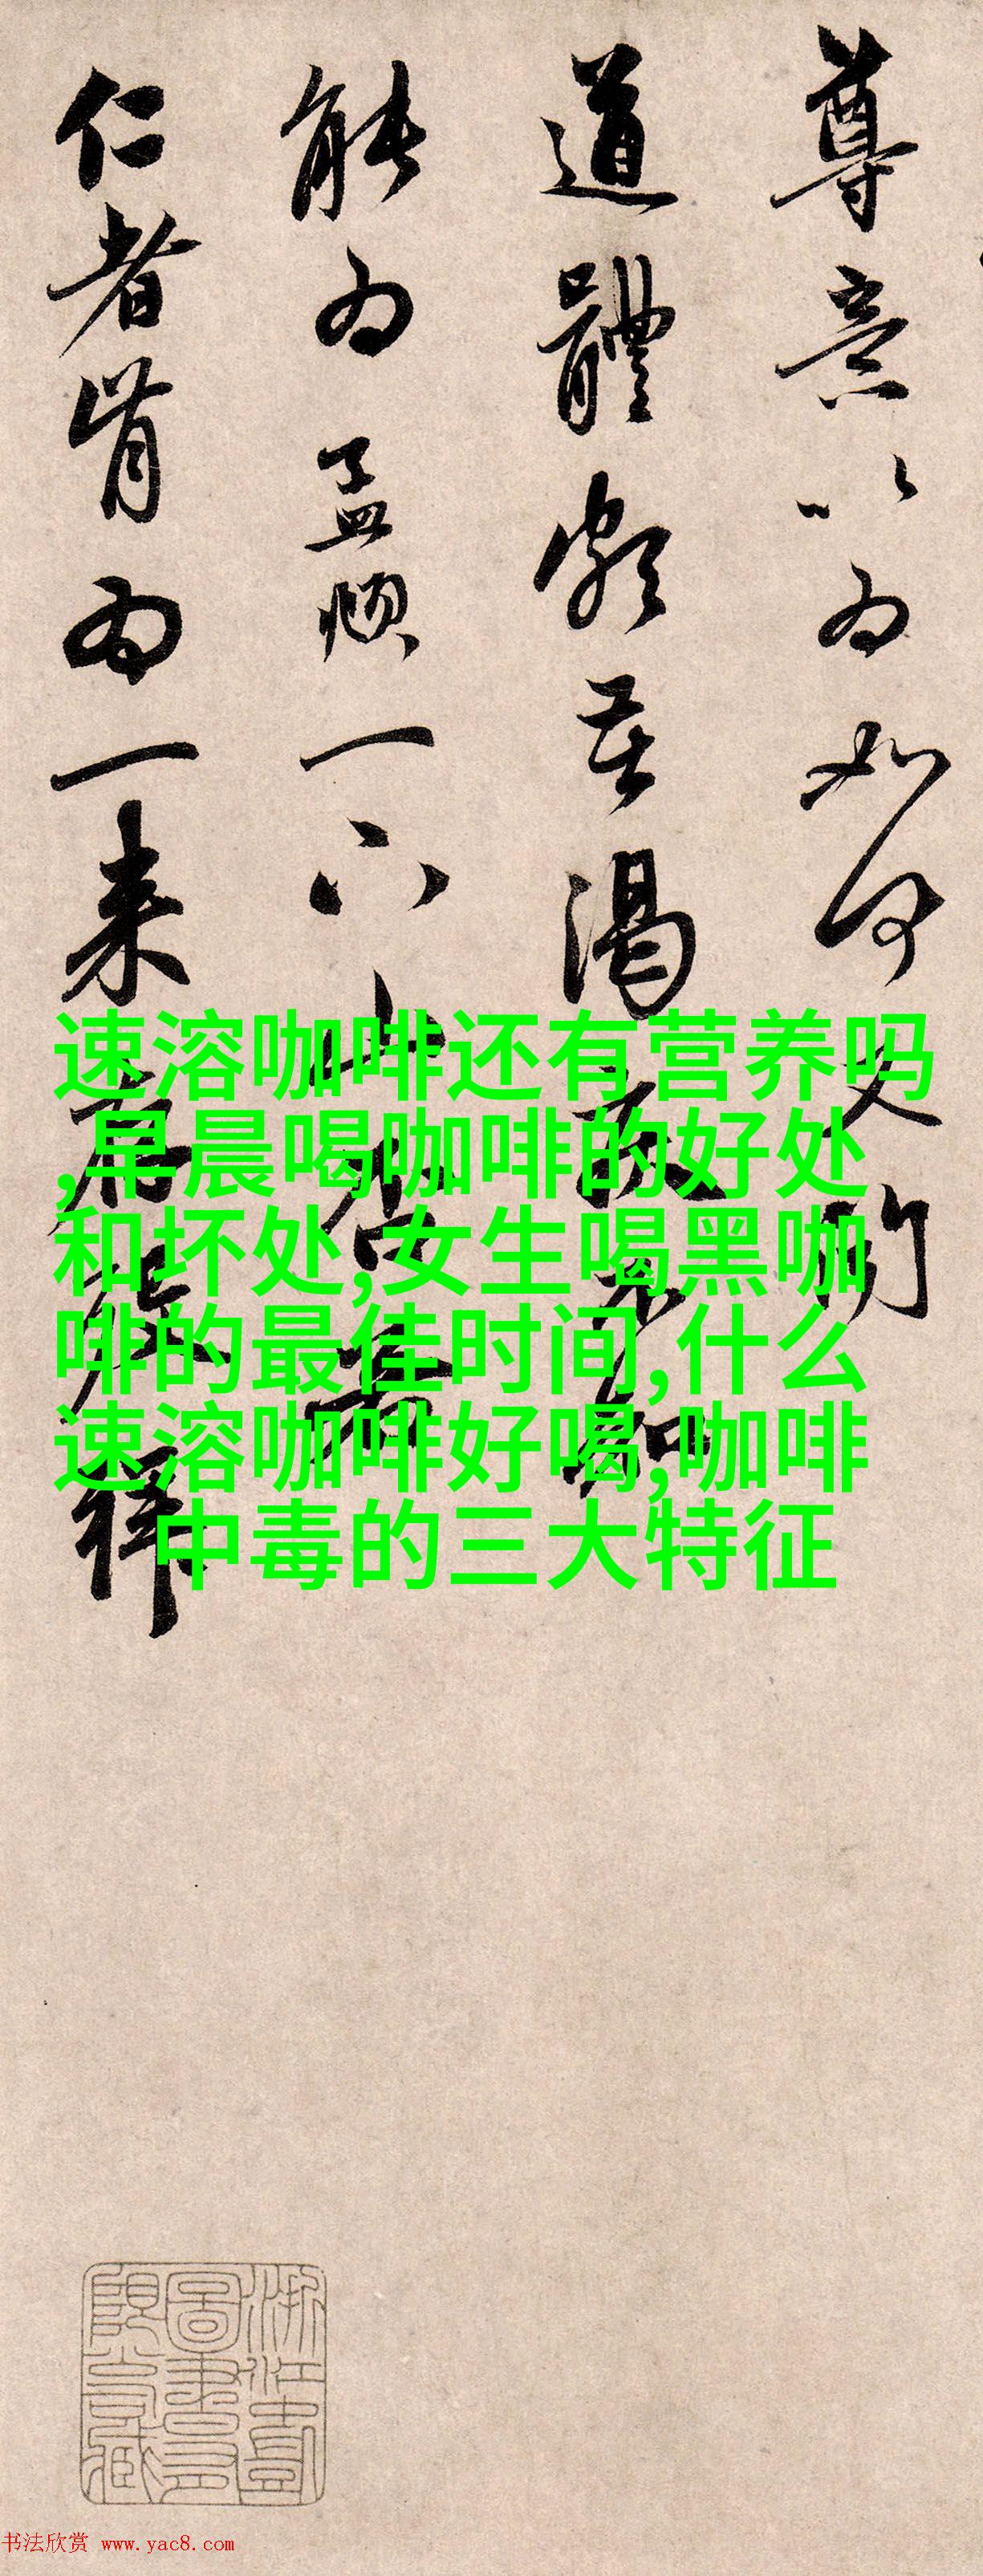 尊意以為如何又聞
道體頗苦渴疾不知
能為孟頫一下山否若
仁者肯為一来
速溶咖啡还有营养吗
,早晨喝咖啡的好处
和坏处,女生喝黑咖
啡的最佳时间,什么
速溶咖啡好喝,咖啡
中毒的三大特征
书法欣赏 www.yac8.com